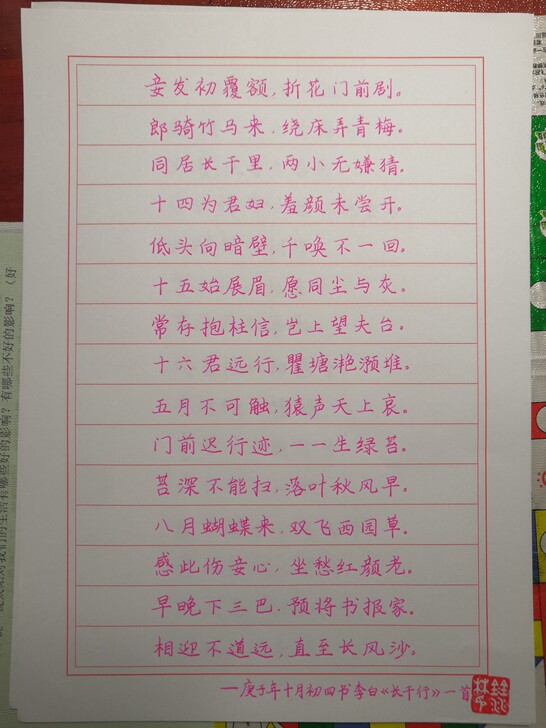 妾发初覆额，折花门前剧。
郎骑竹马来，绕床弄青梅。
同居长干里，两小无嫌猜。
十四为君妇，羞颜未尝开。
低头向暗壁，千唤不一回。
十五始展眉，愿同尘与灰。
常存抱柱信，岂上望夫台。
十六君远行，瞿塘滟滪堆。
五月不可触，猿声天上哀。
门前迟行迹，一一生绿苔。
苔深不能扫，落叶秋风早。
八月蝴蝶来，双飞西园草。
感此伤妾心，坐愁红颜老。
早晚下三巴，预将书报家。
相迎不道远，直至长风沙。
—庚子年十月初四书李白《长干行》一首